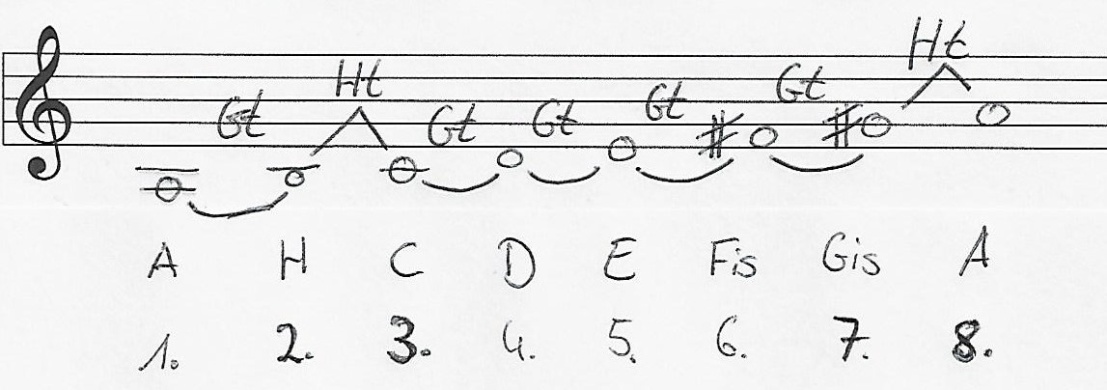 Gt Ht Gt Gt Gt Gt Ht
A H C D E Fis Gis A
1. 2. 3. 4. 5. 6. 7. 8.